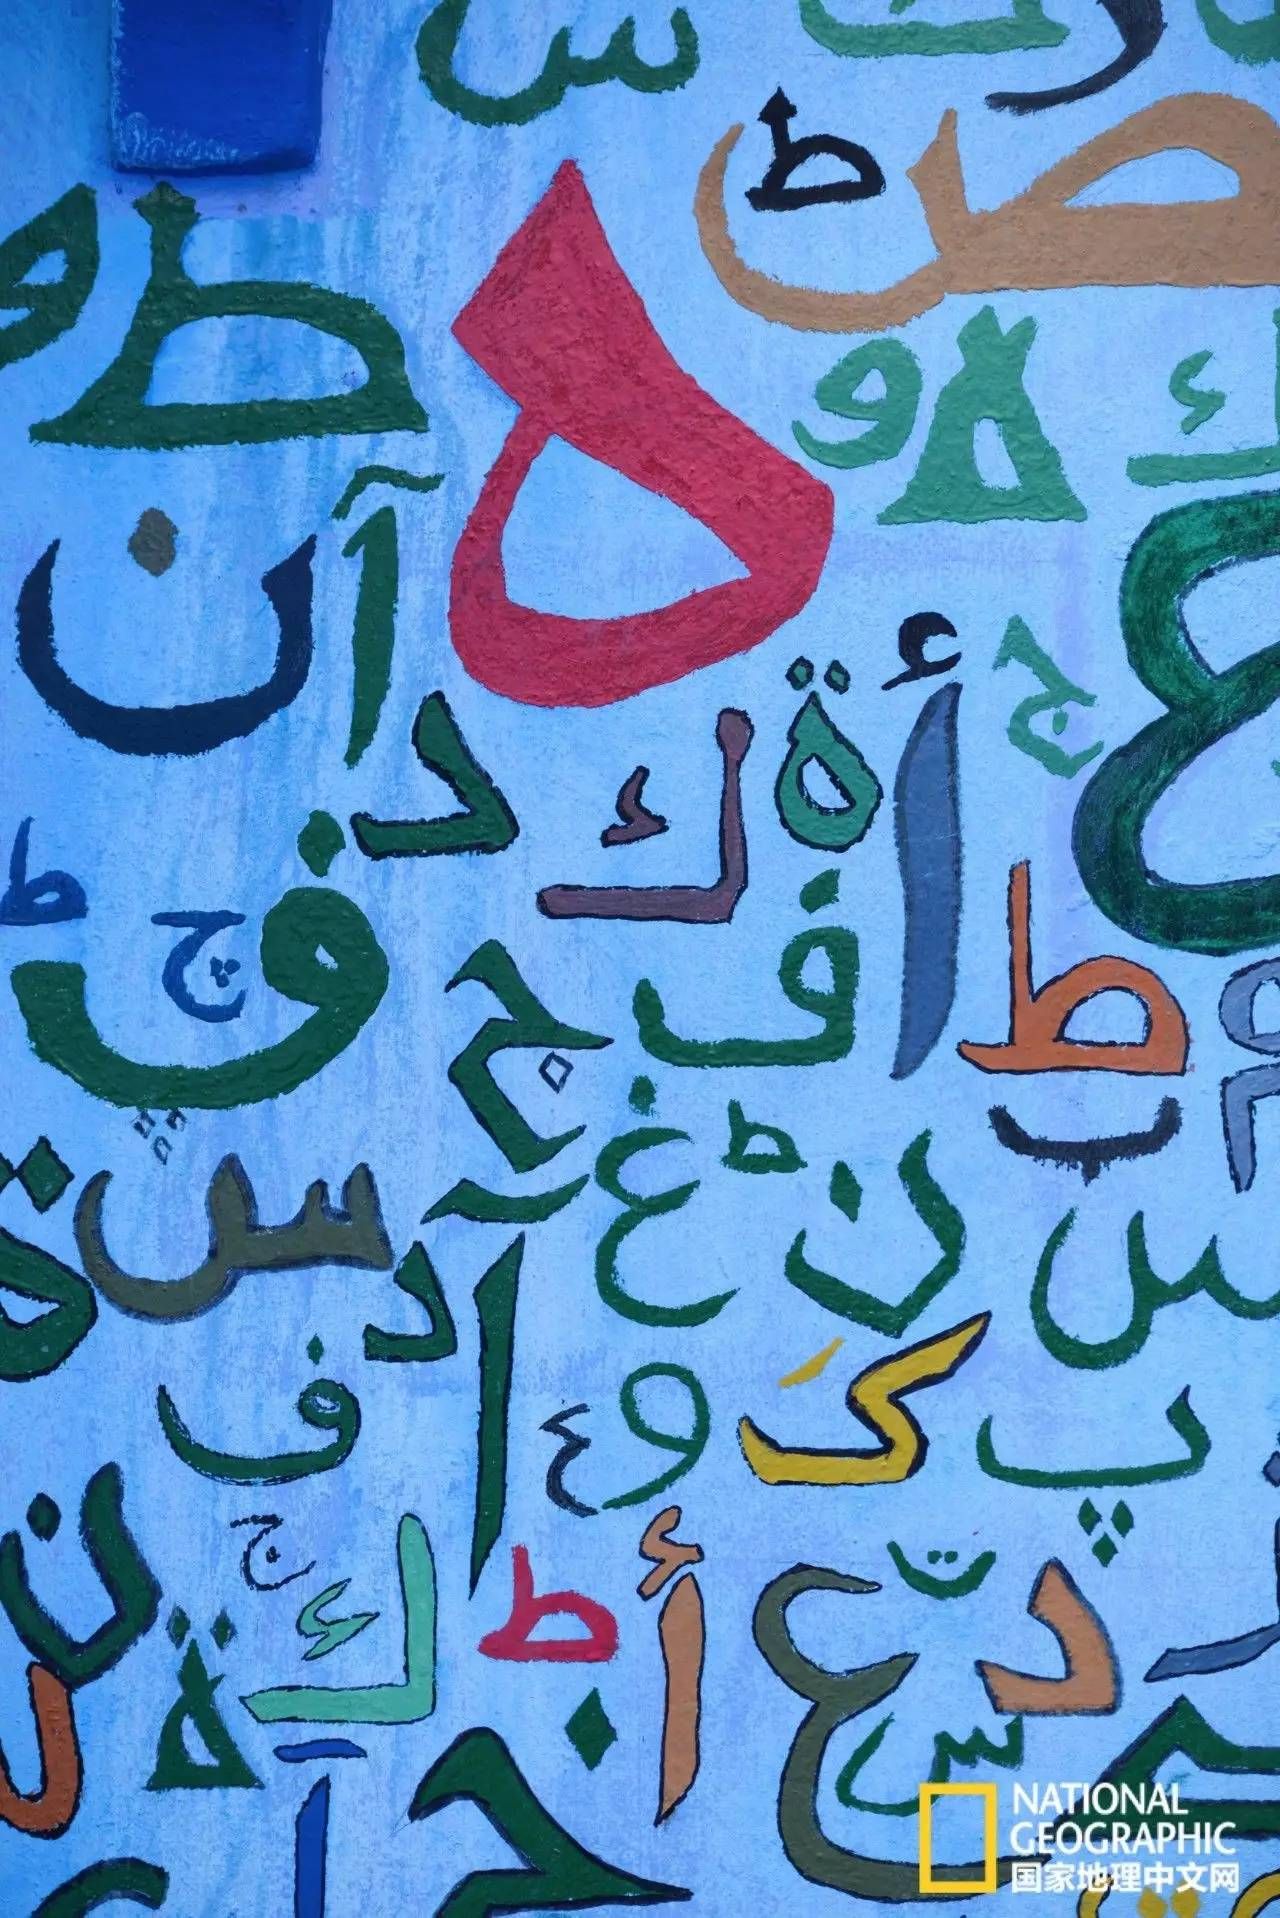 س
ط ص
ط و
ه
ة و
آ ن
ع ج أ ة ك د
ط ف ج ف چ ط
ب ط غ
س ن آ د س ة
ک و ع ف
پ
ت ع أ ط ك ج ن
د س ة
ج
NATIONAL
GEOGRAPHIC
国家地理中文网